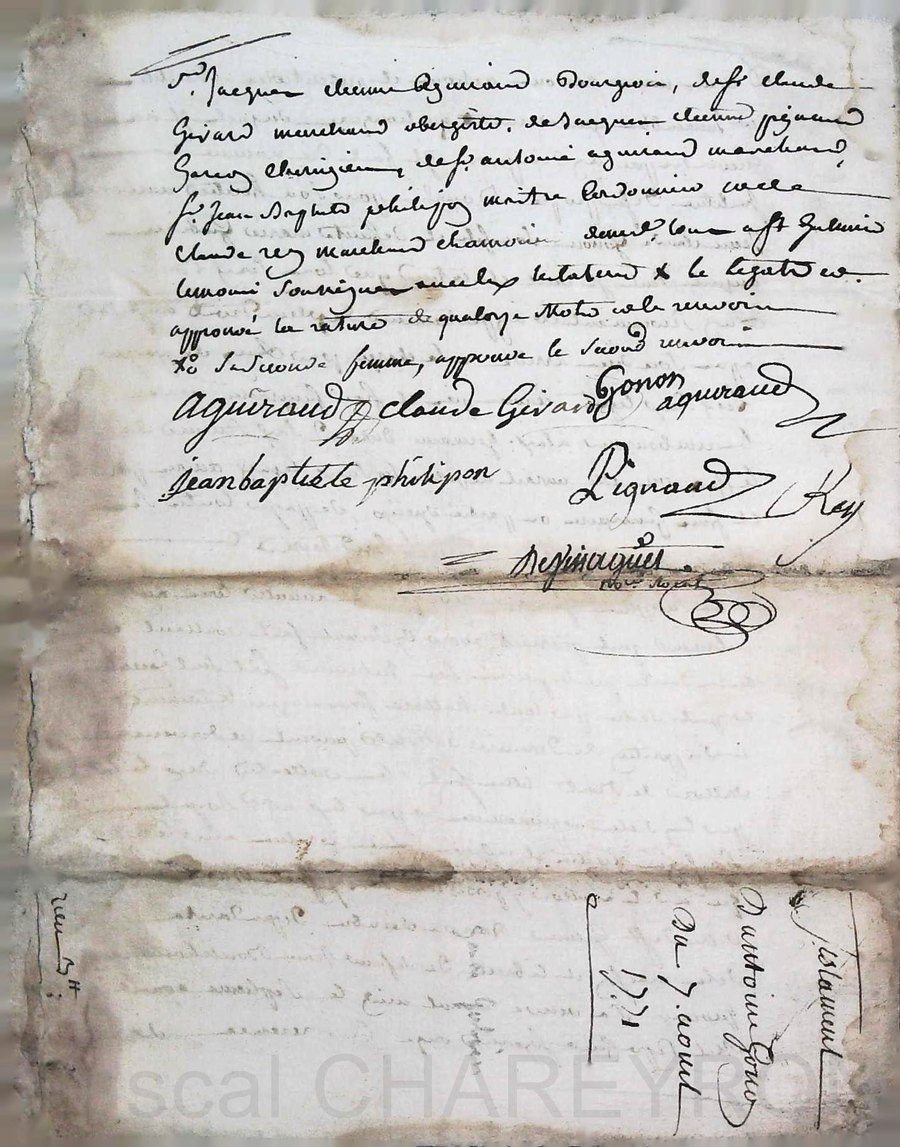 Sr. Jacques Etienne Aguiraud Bourgeois, de Sr. Claude
Girard marchand obergiste, de Jacques Etienne pignaud
Garcon Chirugien, de Sr. antoine aguiraud marchand,
Sr. Jean Baptiste philipon maitre Cordonnier et de
Claude rey marchand chamoisier
temoins Soussignes avec le testateur X le legataire
approuvé la rature de quatorze mots et le renvoi
Xo Sa Seconde femme, approuve le Second renvoi
aguiraud claude Girard Gonon aguiraud
jean baptiste philipon Pignaud Rey
Notre Royal
Testament
D'antoine Gonon
Du 7. aout
1771